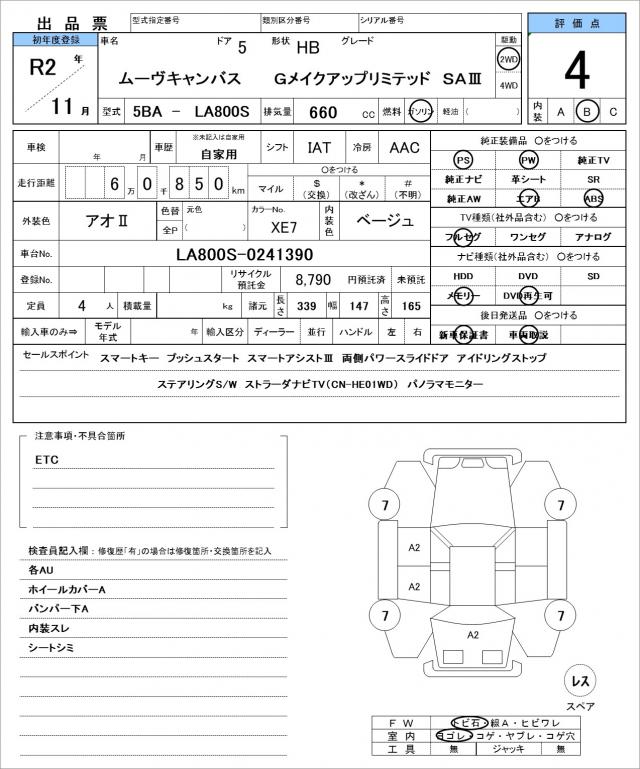 出 品 票 型式指定番号 類別区分番号 シリアル番号 評 価 点
初年度登録 車名 ドア 5 形状 HB グレード 駆動
R2 年 ムーヴキャンバス Gメイクアップリミテッド SAⅢ 2WD 4
4WD
11 月 型式 5BA － LA800S 排気量 660 CC 燃料 ガソリン 軽油 ( ) 内装 A B C
車検 年 月 車歴 ※未記入は自家用 自家用 シフト IAT 冷房 AAC 純正装備品 〇をつける
PS PW 純正TV
走行距離 6 万 0 千 8 5 0 km 〇をつける マイル $ (交換) * (改ざん) # (不明) 純正ナビ 革シート SR
純正AW エアB ABS
外装色 アオⅡ 色替 元色 全P ( ) カラーNo. XE7 内装色 ベージュ TV種類(社外品含む) 〇をつける
フルセグ ワンセグ アナログ
車台No. LA800S-0241390 ナビ種類(社外品含む) 〇をつける
登録No. リサイクル預託金 8,790 円預託済 未預託 HDD DVD SD
メモリー DVD再生可
定員 4 人 積載量 kg 諸元 長さ 339 幅 147 高さ 165 後日発送品 〇をつける
輸入車のみ⇒ モデル年式 年 輸入区分 ディーラー 並行 ハンドル 左 右 新車保証書 車両取説
セールスポイント スマートキー プッシュスタート スマートアシストⅢ 両側パワースライドドア アイドリングストップ
ステアリングS/W ストラーダナビTV(CN-HE01WD) パノラマモニター
注意事項・不具合箇所
ETC
検査員記入欄：修復歴「有」の場合は修復箇所・交換箇所を記入
各AU
ホイールカバーA
バンパー下A
内装スレ
シートシミ
7 7
A2
A2
7 7
A2
レス
スペア
F W トビ石・線A・ヒビワレ
室 内 ヨゴレ・コゲ・ヤブレ・コゲ穴
工 具 無 ジャッキ 無